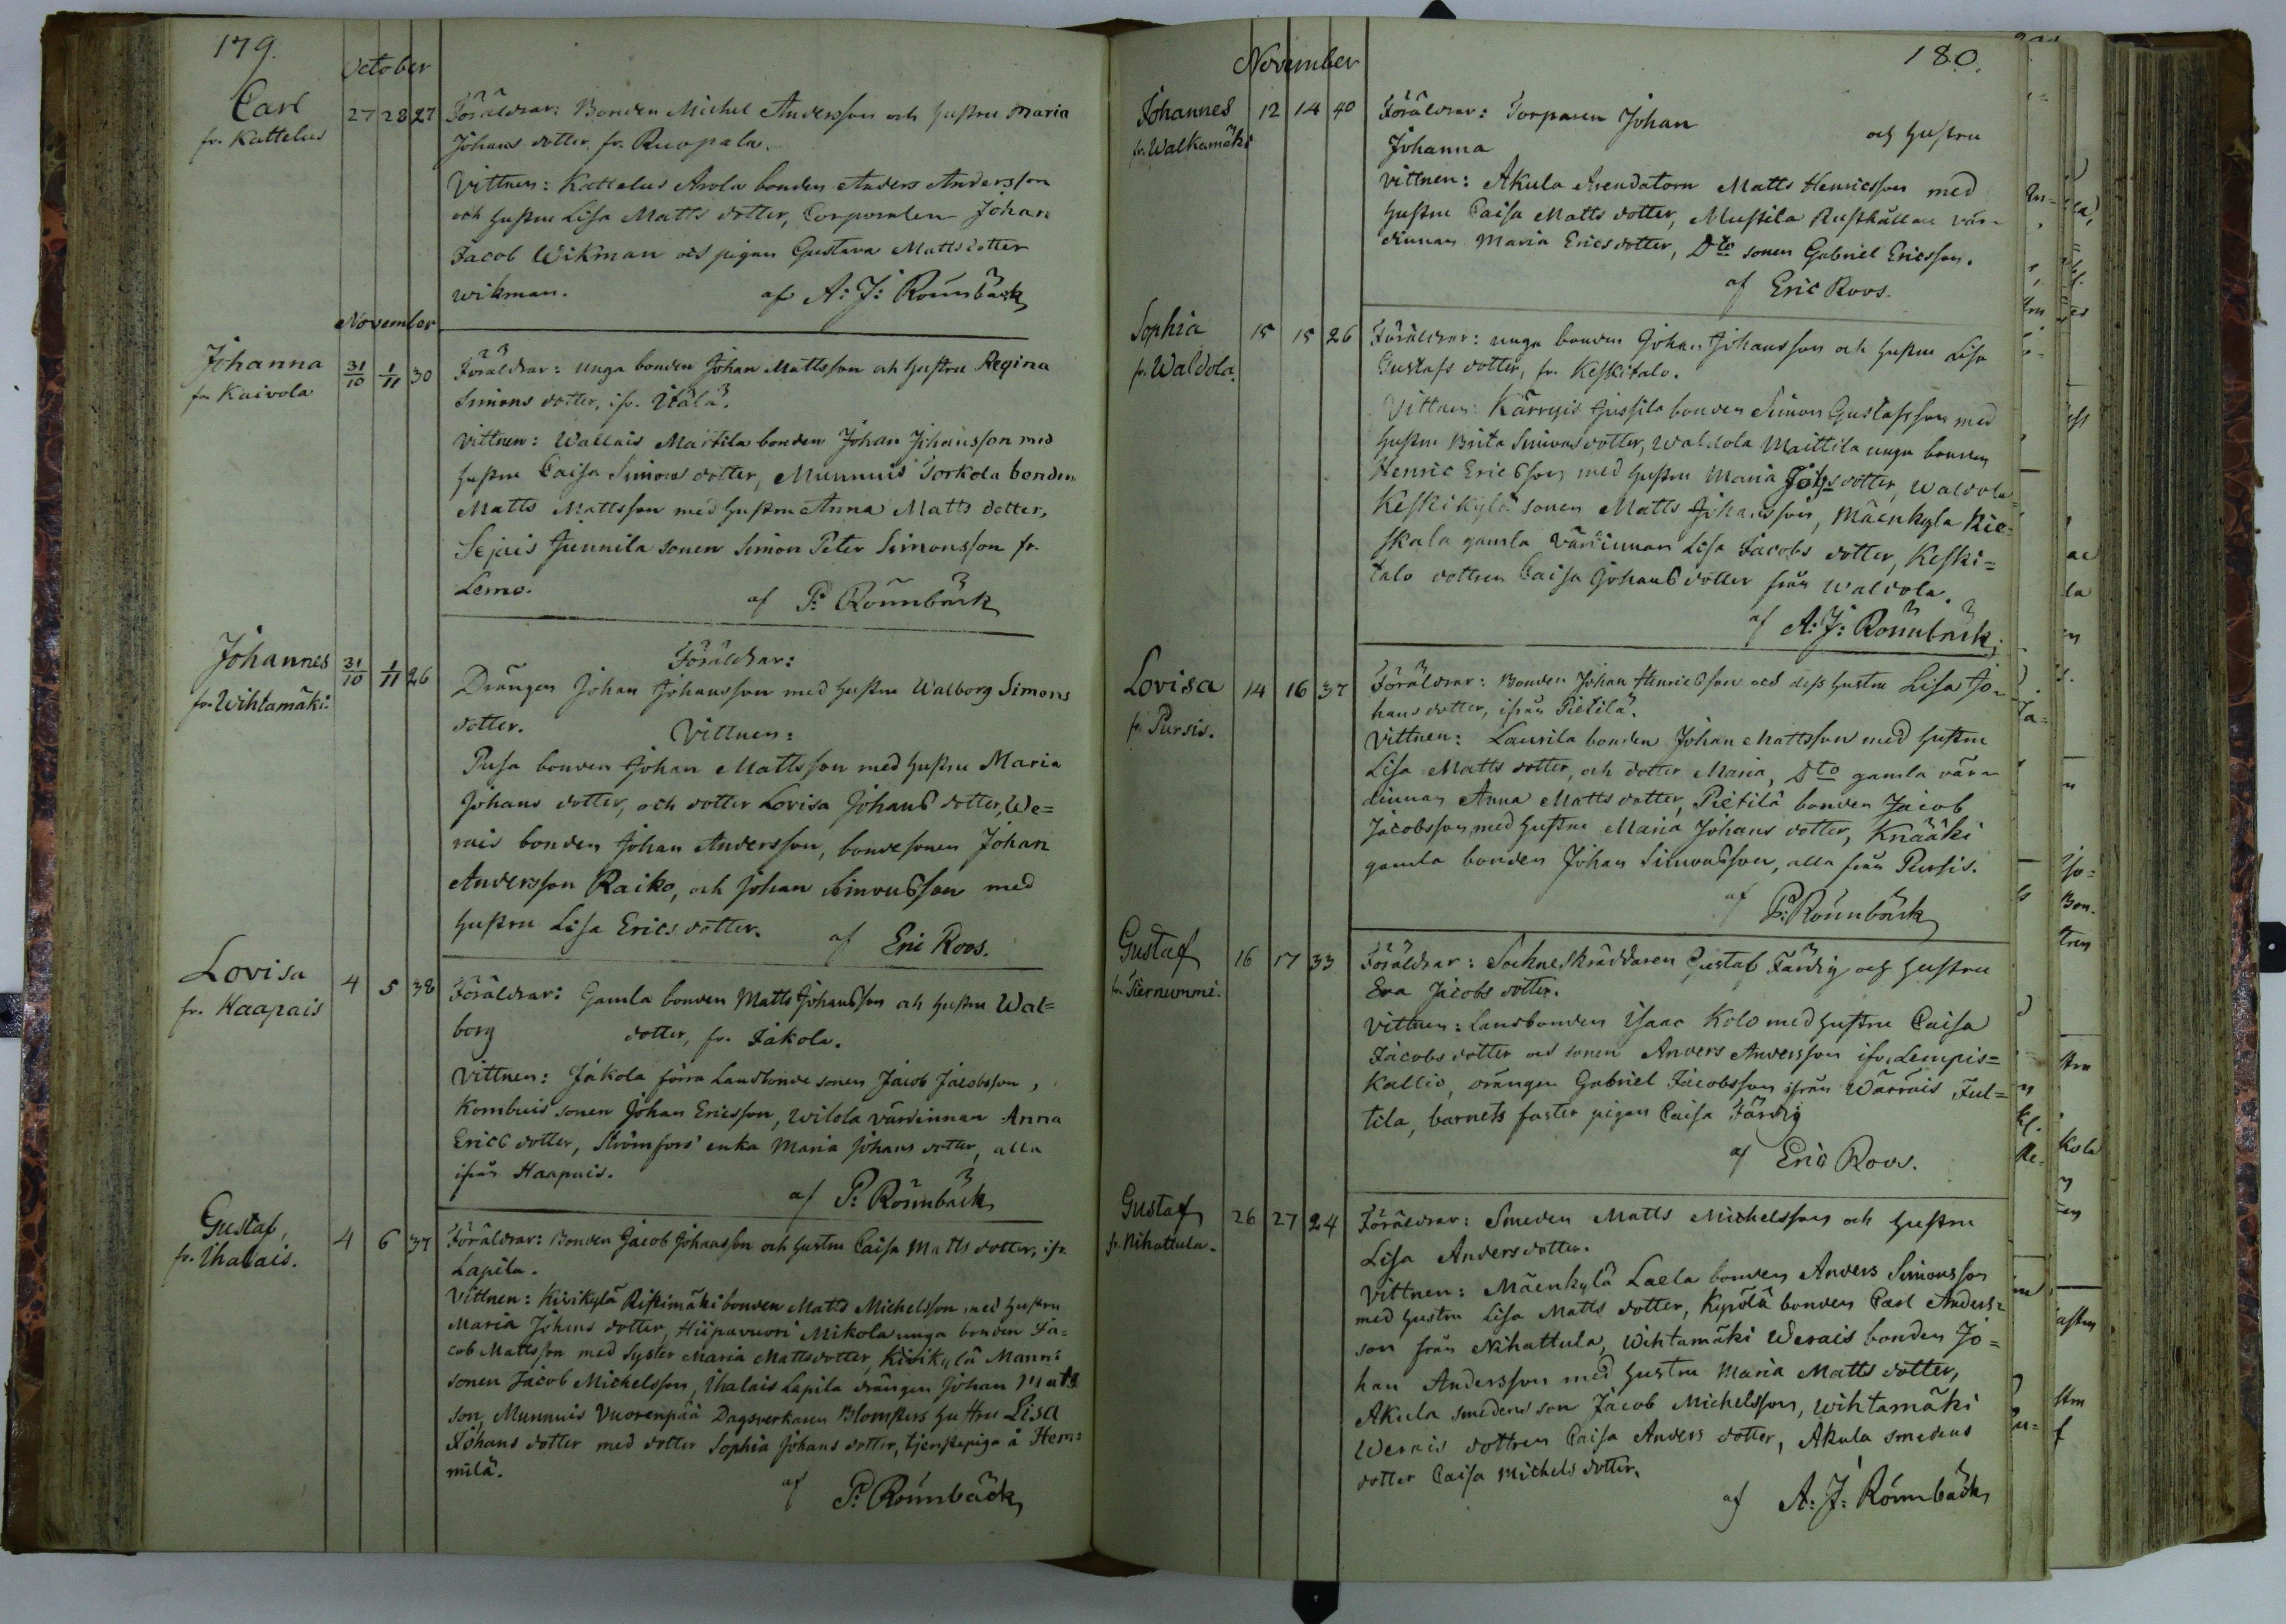 179.
October
Carl
fr. Kattelus
27 28 27
Föräldrar: Bonden Michel Andersson och hustru Maria
Johans dotter fr. Ruopala.
Vittnen: Kattelus Arola bonden Anders Andersson
och hustru Lisa Matts dotter, Corporalen Johan
Jacob Wikman och pigan Gustava Mattsdotter
Wikman. af A: J: Rönnbäck
November
Johanna
fr. Kaivola
31/10 1/11 30
Föräldrar: unga bonden Johan Mattsson och hustru Regina
Simons dotter, ifr. Itälä.
Vittnen: Wallais Marttila bonden Johan Johansson med
hustru Caisa Simons dotter, Munnuis Torkola bonden
Matts Mattsson med hustru Anna Matts dotter,
Sejais Junnila sonen Simon Peter Simonsson fr.
Lemo. af P: Rönnbäck
Johannes
fr. Wihtamäki
31/10 1/11 26
Föräldrar:
Drängen Johan Johansson med hustru Walborg Simons
dotter. Vittnen:
Pusa bonden Johan Mattsson med hustru Maria
Johans dotter, och dotter Lovisa Johans dotter, We=
rais bonden Johan Andersson, bondesonen Johan
Andersson Raiko, och Johan Simonsson med
hustru Lisa Erics dotter. af Eric Roos.
Lovisa
fr. Haapais
4 5 38
Föräldrar: Gamla bonden Matts Johansson och hustru Wal=
borg dotter, fr. Jakola.
Vittnen: Jakola förra Landbonde sonen Jacob Jacobsson,
Kombuis sonen Johan Ericsson, Wilola värdinnan Anna
Erics dotter, Strömfors' enka Maria Johans dotter, alla
ifrån Haapais.
af P: Rönnbäck
Gustaf,
fr. Ihalais.
4 6 37
Föräldrar: Bonden Jacob Johansson och hustru Caisa Matts dotter, ifr.
Lapila.
Vittnen: Kivikylä Ristimäki bonden Matts Michelsson med hustru
Maria Johans dotter, Hiipavuori Mikola unga bonden Ja=
cob Mattsson med syster Maria Mattsdotter, Kivikylä Manni
sonen Jacob Michelsson, Ihalais Lapila drängen Johan Mats
son, Munnuis Vuorenpää Dagsverkaren Blomsters hustru Lisa
Johans dotter med dotter Sophia Johans dotter, tjenstepiga å Hem=
milä. af P: Rönnbäck
November
180.
Johannes
fr. Walkamäki
12 14 40
Föräldrar: Torparen Johan och hustru
Johanna
Vittnen: Akula Arendatorn Matts Henricsson med
hustru Caisa Matts dotter, Mustila Rusthållare vär=
dinnan Maria Ericsdotter, Dto sonen Gabriel Ericsson.
af Eric Roos.
Sophia
fr. Waldola.
15 15 26
Föräldrar: unga bonden Johan Johansson och hustru Lisa
Gustafs dotter, fr. Keskitalo.
Vittnen: Kärryis Jussila bonden Simon Gustafsson med
hustru Brita Simonsdotter, Waldola Maittila unga bonden
Henric Ericsson med hustru Maria Johs dotter, Waldola
Keskikylä sonen Matts Johansson, Mäenkylä Rie=
skala gamla värdinnan Lisa Jacobs dotter, Keski=
talo dottren Caisa Johans dotter från Waldola.
af A: J: Rönnbäck
Lovisa
fr. Pursis.
14 16 37
Föräldrar: Bonden Johan Henricsson och dess hustru Lisa Jo=
hans dotter, ifrån Pietilä.
Vittnen: Laurila bonden Johan Mattsson med hustru
Lisa Matts dotter, och dotter Maria, Dto gamla vär=
dinnan Anna Matts dotter, Pietilä bonden Jacob
Jacobsson med hustru Maria Johans dotter, Knaäki
gamla bonden Johan Simonsson, alla från Pursis.
af P: Rönnbäck
Gustaf
fr. Niernummi.
16 17 33
Föräldrar: Sockneskräddaren Gustaf Färdig och hustru
Eva Jacobs dotter.
Vittnen: Landbonden Isaac Kolo med hustru Caisa
Jacobs dotter och sonen Anders Andersson ifr. Lempis=
Kallio, drängen Gabriel Jacobsson ifrån Wärräis Jut=
tila, barnets faster pigan Caisa Färdig
af Eric Roos.
Gustaf
fr. Nihattula.
26 27 24
Föräldrar: Smeden Matts Michelsson och hustru
Lisa Andersdotter.
Vittnen: Mäenkylä Laela bonden Anders Simonsson
med hustru Lisa Matts dotter, Kypölä bonden Carl Anders=
son från Nihattula, Wihtamäki Werais bonden Jo=
han Andersson med hustru Maria Matts dotter,
Akula smedens son Jacob Michelsson, Wihtamäki
Werais dottren Caisa Anders dotter, Akula smedens
dotter Caisa Michels dotter.
af A: J: Rönnbäck